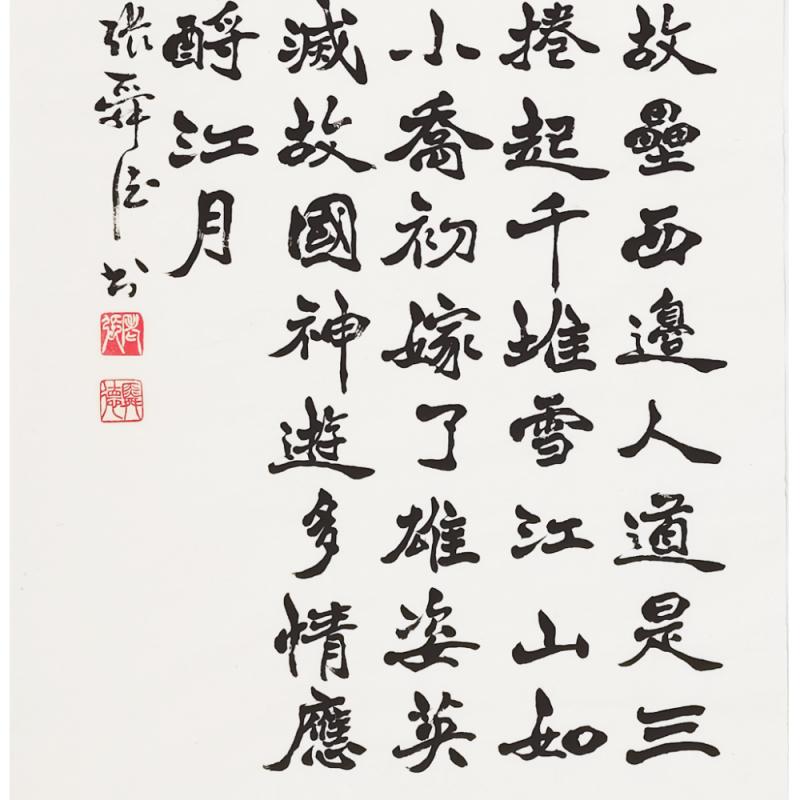 故壘西邊人道是三
捲起千堆雪江山如
小喬初嫁了雄姿英
滅故國神遊多情應
酹江月
張舜德书
舜德